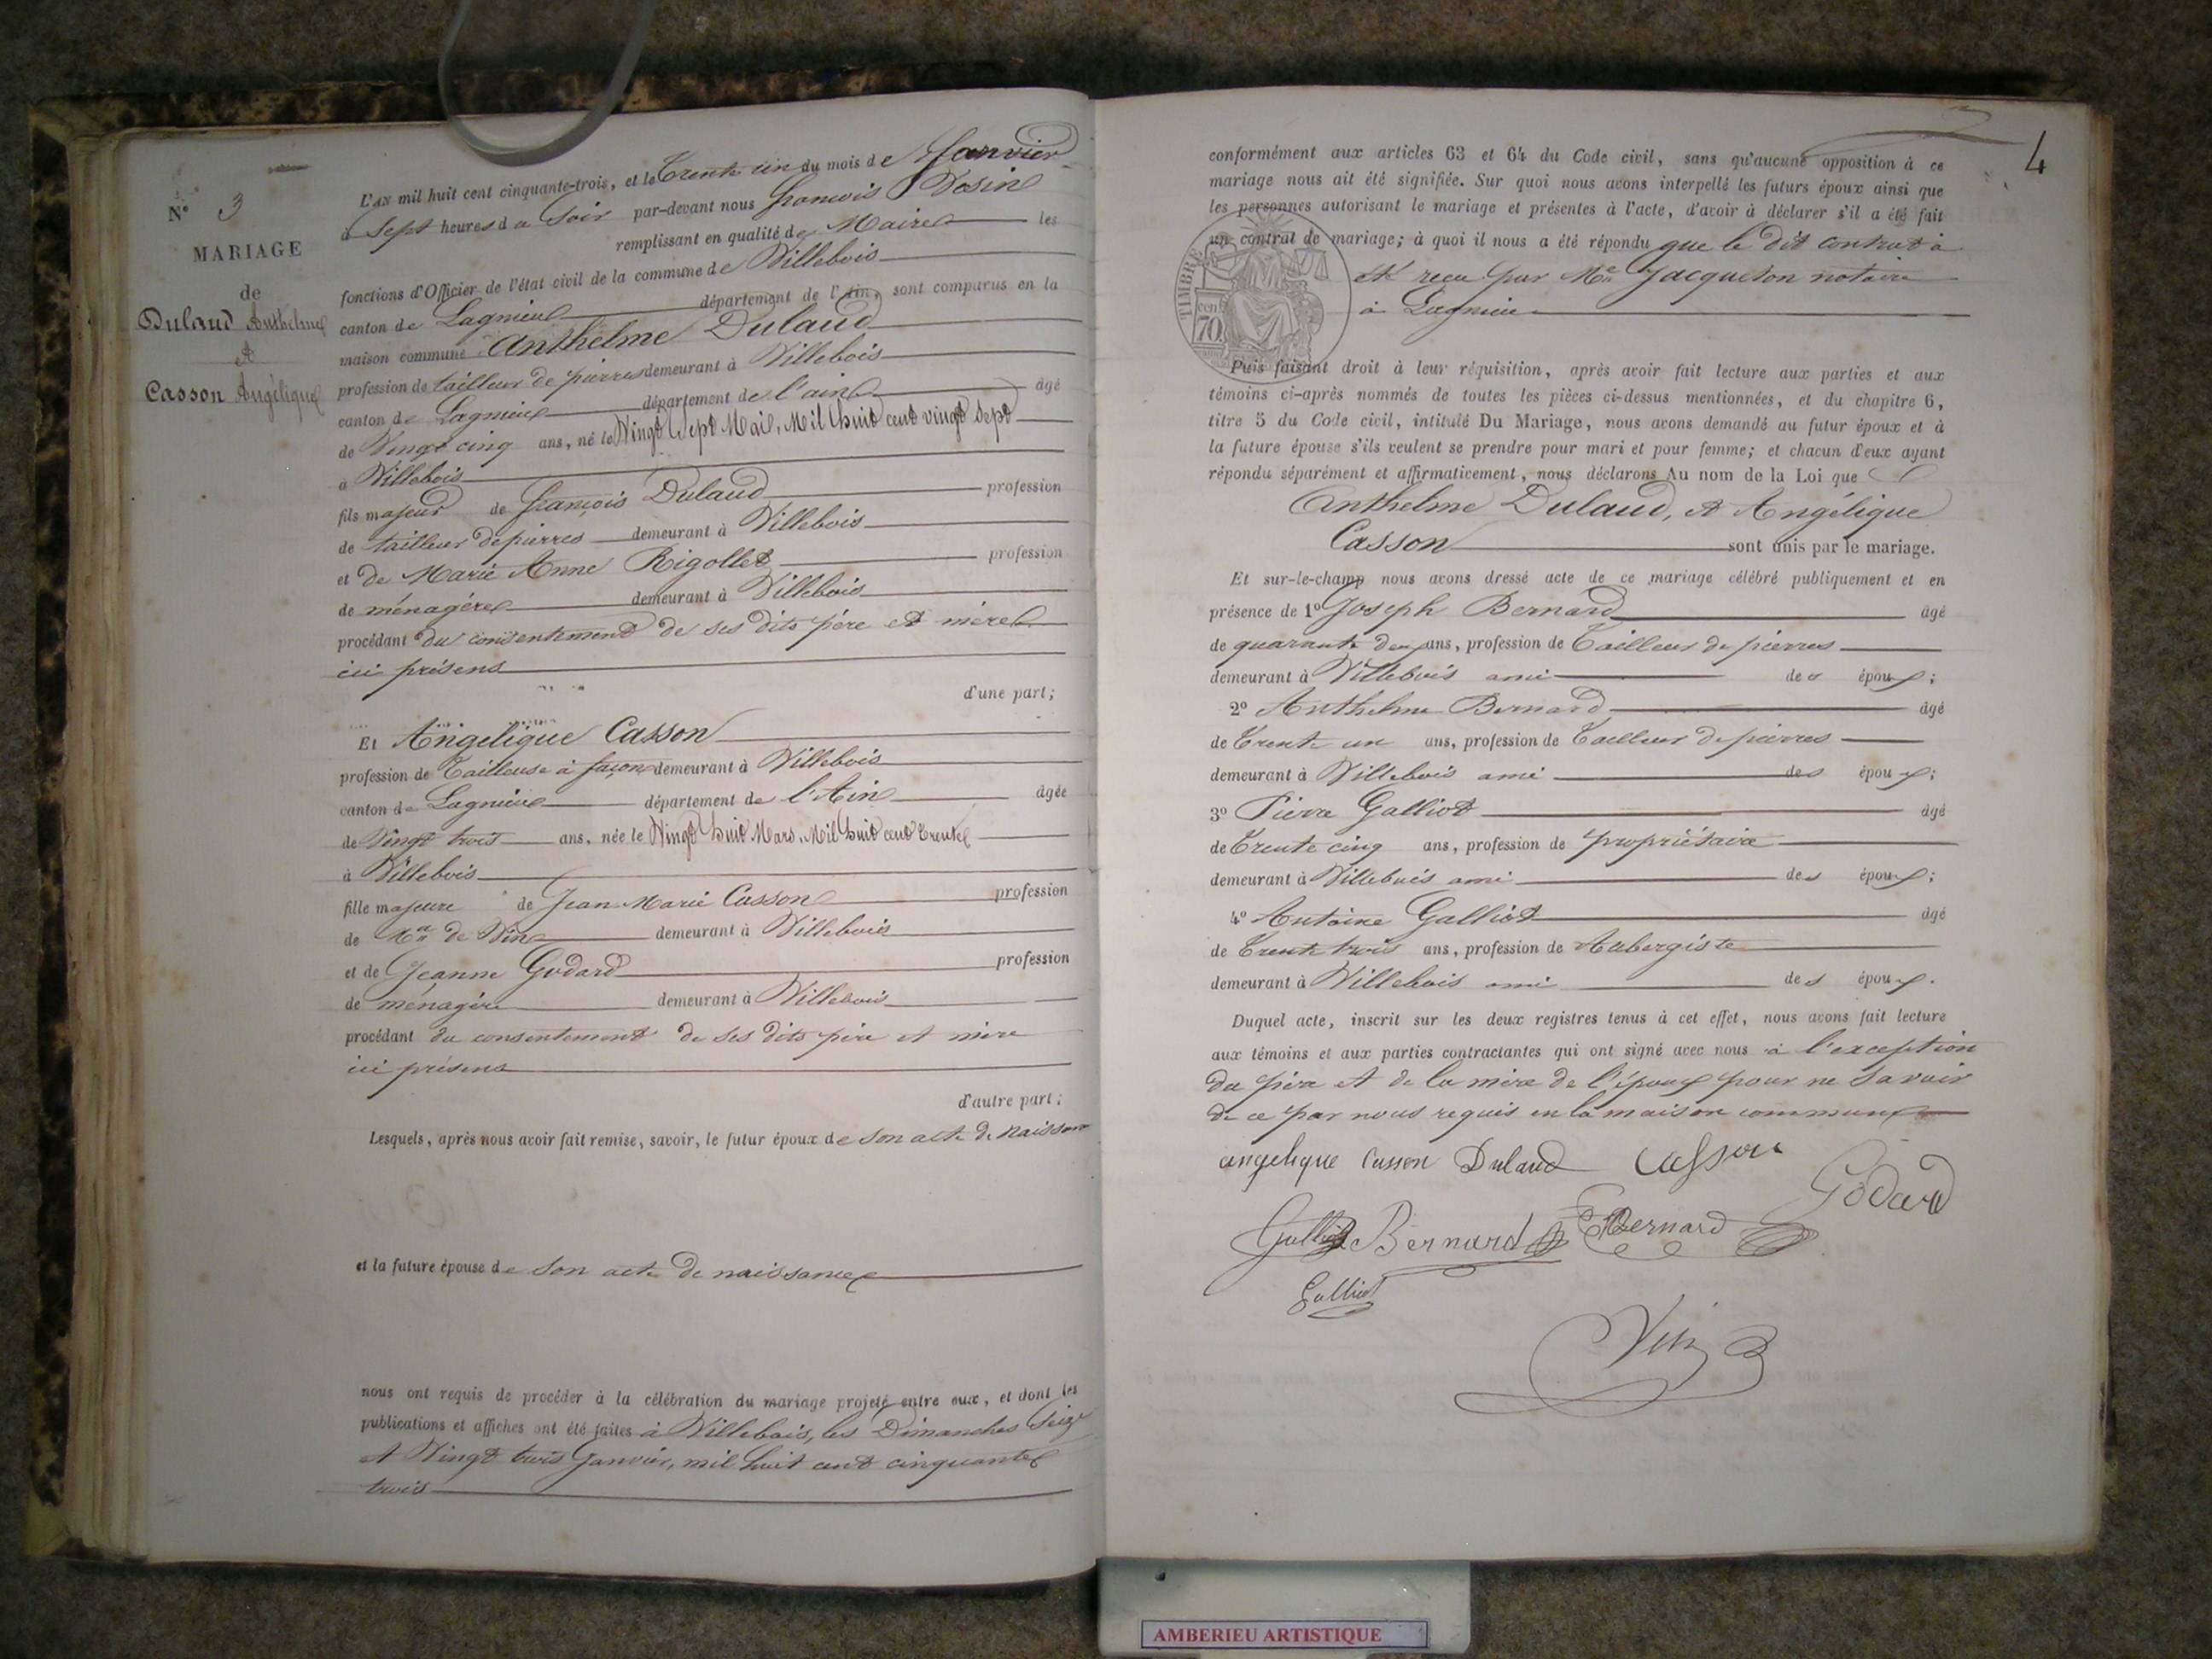 N° 3
MARIAGE
de
Dulaud Anthelme
et
Casson Angélique
L'an mil huit cent cinquante-trois, et le Trente un du mois de Janvier
à Sept heures du Soir par-devant nous françois
remplissant en qualité de Maire les
fonctions d'Officier de l'état civil de la commune de Villebois
canton de Lagnieu département de l'Ain, sont comparus en la
maison commune Anthelme Dulaud
profession de tailleur de pierres demeurant à Villebois
canton de Lagnieu département de l'ain âgé
de Vingt cinq ans, né le Vingt Sept Mai, Mil huit cent vingt sept
à Villebois
fils majeur de françois Dulaud profession
de tailleur de pierres demeurant à Villebois
et de Marie Anne Rigollet profession
de ménagère demeurant à Villebois
procédant du consentement de ses dits père et mère
ici présens
d'une part;
Et Angélique Casson
profession de Tailleuse à façon demeurant à Villebois
canton de Lagnieu département de l'Ain âgée
de Vingt trois ans, née le Vingt huit Mars, Mil huit cent Trente
à Villebois
fille majeure de Jean Marie Casson profession
de Md de Vin demeurant à Villebois
et de Jeanne Godard profession
de ménagère demeurant à Villebois
procédant du consentement de ses dits père et mère
ici présens
d'autre part;
Lesquels, après nous avoir fait remise, savoir, le futur époux de son acte de naissance
et la future épouse de son acte de naissance
nous ont requis de procéder à la célébration du mariage projeté entre eux, et dont les
publications et affiches ont été faites à Villebois, les Dimanches Seize
et Vingt trois Janvier, mil huit cent cinquante
trois
4
conformément aux articles 63 et 64 du Code civil, sans qu'aucune opposition à ce
mariage nous ait été signifiée. Sur quoi nous avons interpellé les futurs époux ainsi que
les personnes autorisant le mariage et présentes à l'acte, d'avoir à déclarer s'il a été fait
un contrat de mariage; à quoi il nous a été répondu que le dit contrat à
été reçu par Me Jacqueton notaire
à Lagnieu
TIMBRE
cent
70
Puis faisant droit à leur réquisition, après avoir fait lecture aux parties et aux
témoins ci-après nommés de toutes les pièces ci-dessus mentionnées, et du chapitre 6,
titre 5 du Code civil, intitulé Du Mariage, nous avons demandé au futur époux et à
la future épouse s'ils veulent se prendre pour mari et pour femme; et chacun d'eux ayant
répondu séparément et affirmativement, nous déclarons Au nom de la Loi que
Anthelme Dulaud, et Angélique
Casson sont unis par le mariage.
Et sur-le-champ nous avons dressé acte de ce mariage célébré publiquement et en
présence de 1° Joseph Bernard âgé
de quarante deux ans, profession de Tailleur de pierres
demeurant à Villebois ami des époux;
2° Anthelme Bernard âgé
de Trente un ans, profession de Tailleur de pierres
demeurant à Villebois ami des époux;
3° Pierre Galliot âgé
de Trente cinq ans, profession de propriétaire
demeurant à Villebois ami des époux;
4° Antoine Galliot âgé
de Trente trois ans, profession de Aubergiste
demeurant à Villebois ami des époux.
Duquel acte, inscrit sur les deux registres tenus à cet effet, nous avons fait lecture
aux témoins et aux parties contractantes qui ont signé avec nous à l'exception
du père et de la mère de l'époux pour ne Savoir
de ce par nous requis en la maison commune
angelique Casson Dulaud Casson
Godard
Galliot Bernard Bernard
Galliot
AMBERIEU ARTISTIQUE